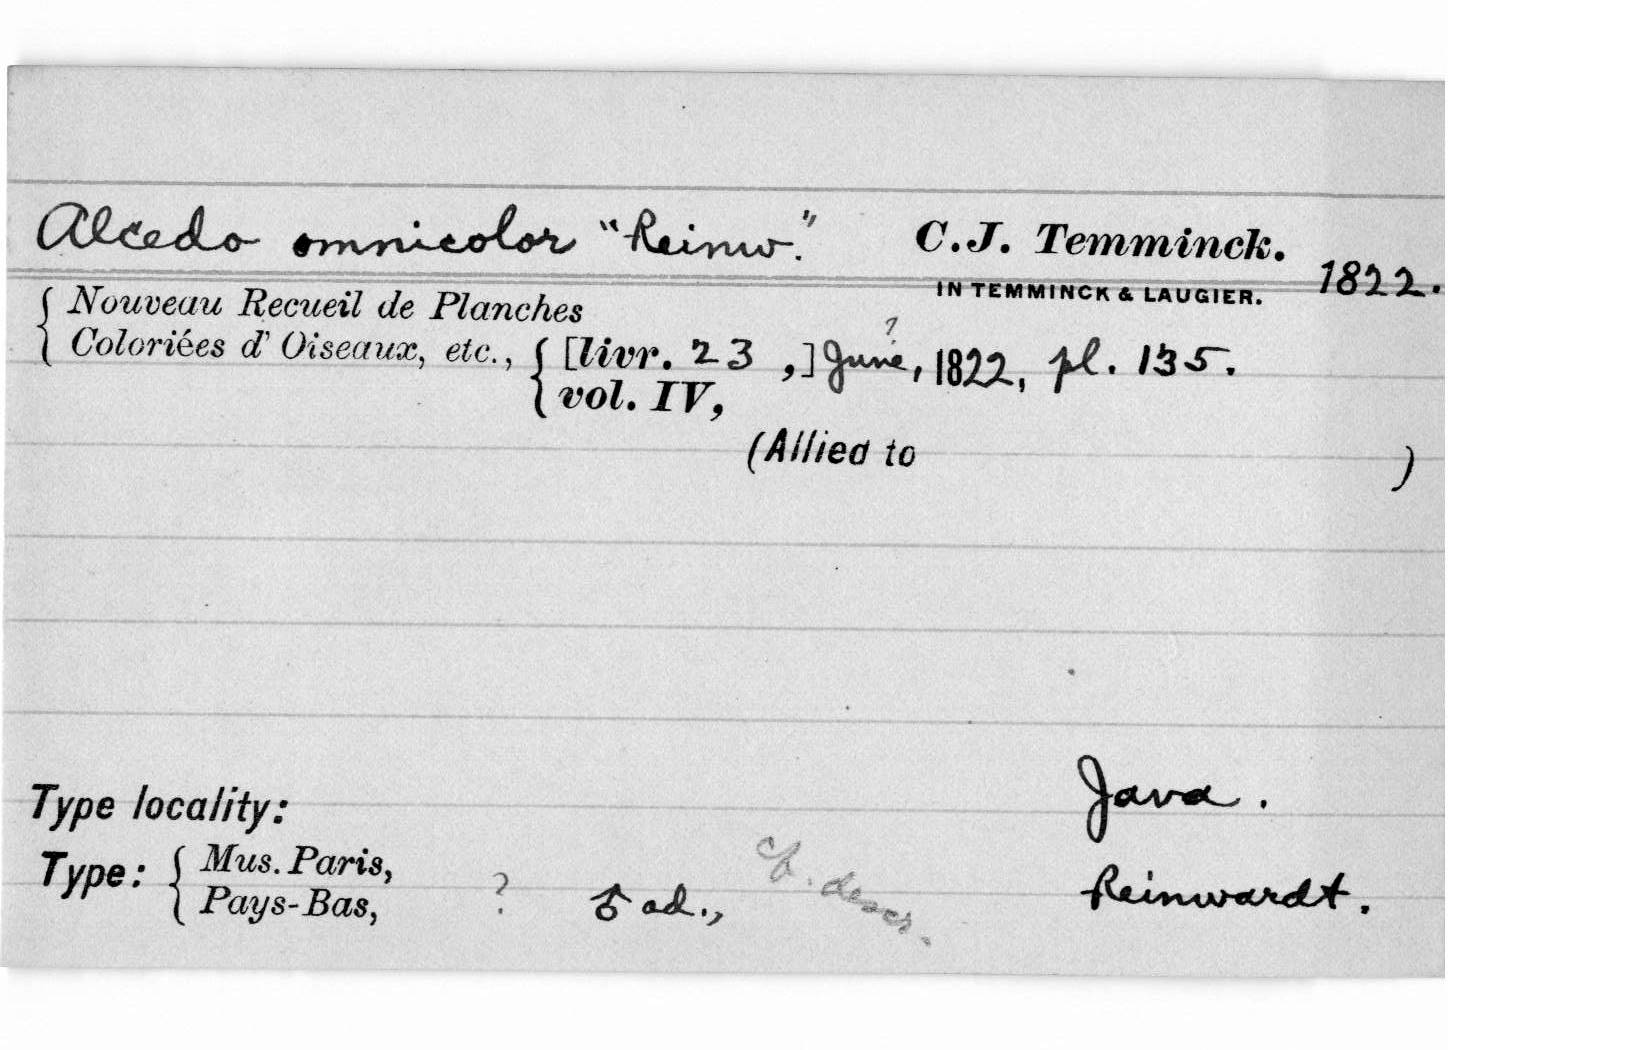 Alcedo omnicolor "Reinw." C.J. Temminck.
IN TEMMINCK & LAUGIER. 1822.
{ Nouveau Recueil de Planches
Coloriées d'Oiseaux, etc., { [livr. 23 ,] June?, 1822, pl. 135.
vol. IV,
(Allied to )
Type locality: Java.
Type: { Mus. Paris,
Pays-Bas, ? ♂ ad., cf. descr. Reinwardt.